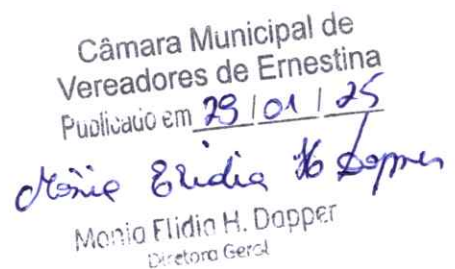 Câmara Municipal de
Vereadores de Ernestina
Publicado em 29 / 01 / 25
Mônia Elidia H Dapper
Monia Elidia H. Dapper
Diretora Geral